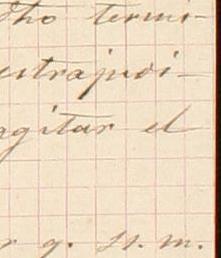 dho termi-
estrajudi-
agitar el
r q. s. m.